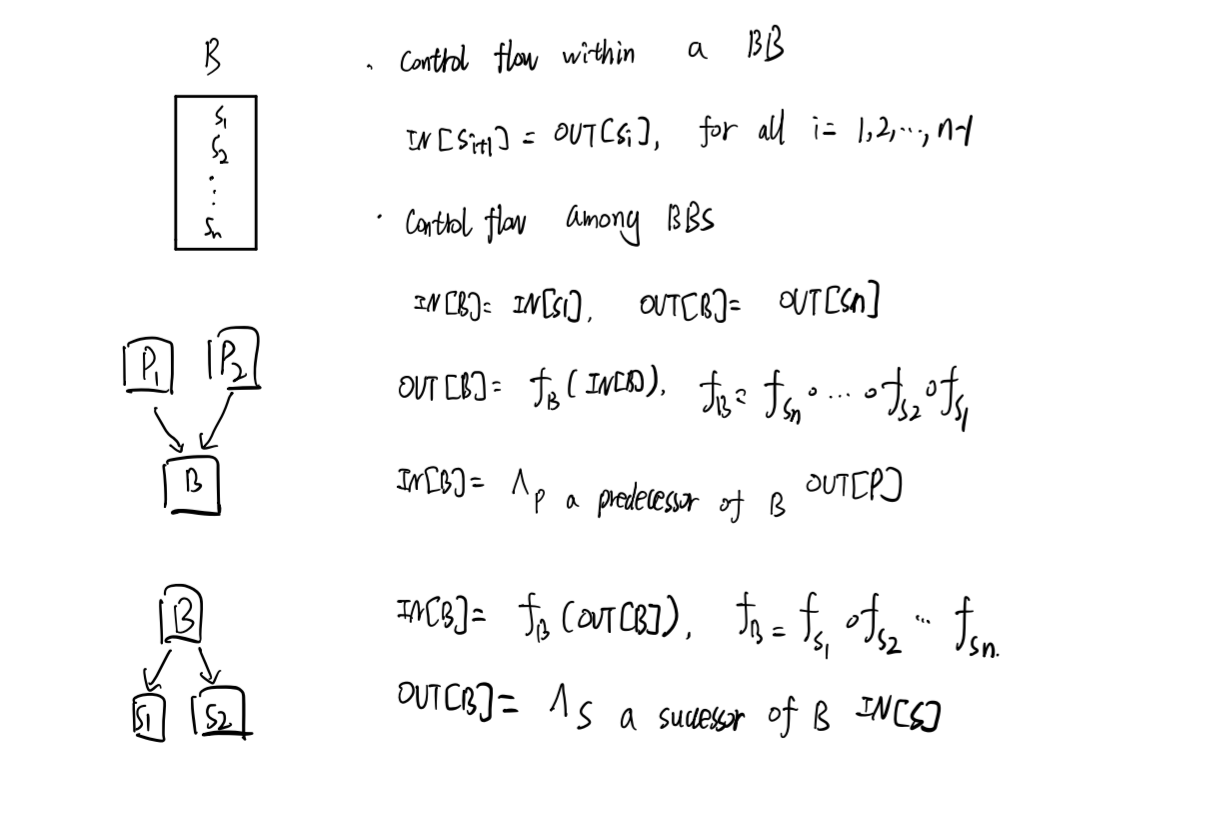 B
S1
S2
⋮
Sn
· Control flow within a BB
IN[Si+1] = OUT[Si], for all i = 1,2,…, n-1
· Control flow among BBS
IN[B] = IN[S1], OUT[B] = OUT[Sn]
P1 P2
B
OUT[B] = fB(IN[B]), fB = fSn ∘ … ∘ fS2 ∘ fS1
IN[B] = ΛP a predecessor of B OUT[P]
B
S1 S2
IN[B] = fB(OUT[B]), fB = fS1 ∘ fS2 … fSn.
OUT[B] = ΛS a successor of B IN[S]